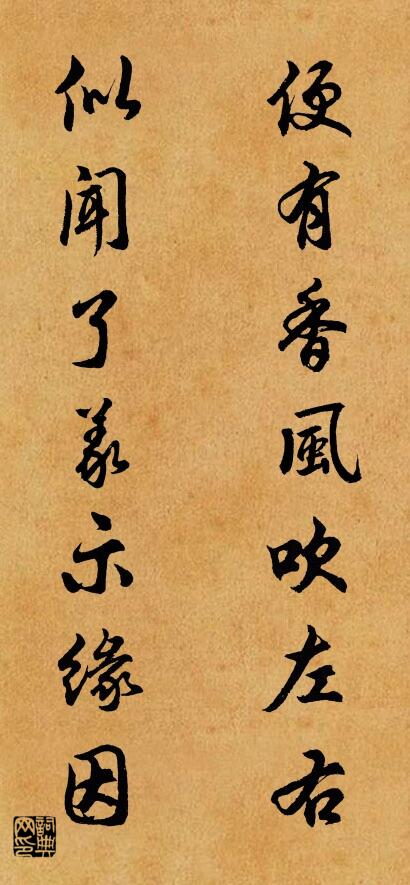 便有香風吹左右
似聞了義示緣因
詞典网印